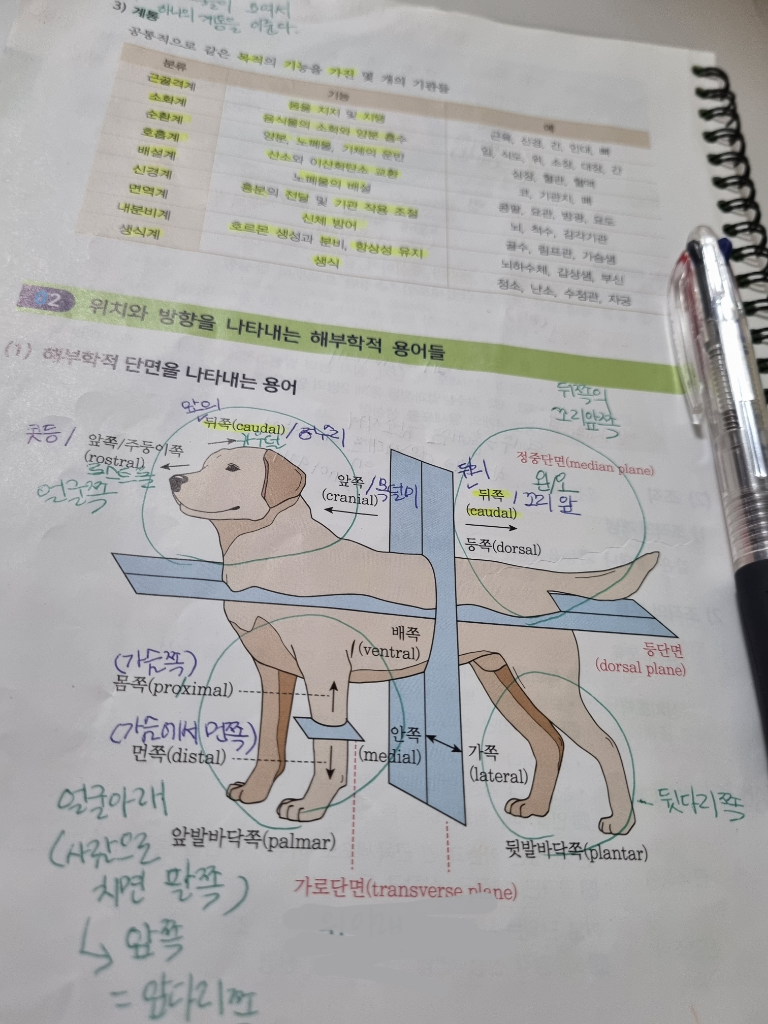 3) 계통
하나의 계통을 이룬다.
공통적으로 같은 목적의 기능을 가진 몇 개의 기관들
분류 기능 예
근골격계 몸을 지지 및 지탱 근육, 신경, 건, 인대, 뼈
소화계 음식물의 소화와 양분 흡수 입, 식도, 위, 소장, 대장, 간
순환계 양분, 노폐물, 기체의 운반 심장, 혈관, 혈액
호흡계 산소와 이산화탄소 교환 코, 기관지, 폐
배설계 노폐물의 배설 콩팥, 요관, 방광, 요도
신경계 흥분의 전달 및 기관 작용 조절 뇌, 척수, 감각기관
면역계 신체 방어 골수, 림프관, 가슴샘
내분비계 호르몬 생성과 분비, 항상성 유지 뇌하수체, 갑상샘, 부신
생식계 생식 정소, 난소, 수정관, 자궁
2 위치와 방향을 나타내는 해부학적 용어들
(1) 해부학적 단면을 나타내는 용어
뒤쪽의
꼬리앞쪽
앞의
뒤쪽(caudal)
콧등/
앞쪽/주둥이쪽
(rostral)
얼굴쪽
앞쪽
(cranial)
정중단면(median plane)
뒤쪽 / 꼬리 앞
(caudal)
등쪽(dorsal)
배쪽
(ventral)
등단면
(dorsal plane)
(가슴쪽)
몸쪽(proximal)
(가슴에서 먼쪽)
먼쪽(distal)
안쪽
(medial)
가쪽
(lateral)
얼굴아래
(사람으로
치면 팔쪽)
↳ 앞쪽
= 앞다리쪽
앞발바닥쪽(palmar)
뒷다리쪽
뒷발바닥쪽(plantar)
가로단면(transverse plane)